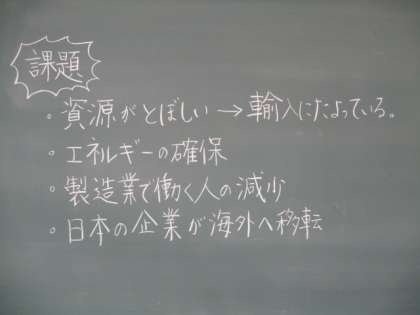 課題
・資源がとぼしい→輸入にたよっている。
・エネルギーの確保
・製造業で働く人の減少
・日本の企業が海外へ移転